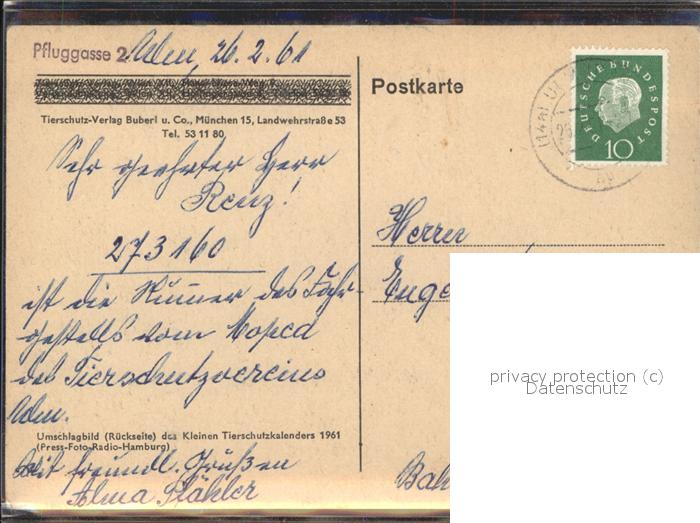 Pfluggasse 2 Ulm, 26.2.61
Tierschutz-Verlag Buberl u. Co., München 15, Landwehrstraße 53
Tel. 53 11 80
Sehr geehrter Herr
Renz!
273160
ist die Nummer des Fahr-
gestells vom Moped
des Tierschutzvereins
Ulm.
Umschlagbild (Rückseite) des Kleinen Tierschutzkalenders 1961
(Press-Foto-Radio-Hamburg)
Mit freundl. Grüßen
Alma Stähler
Postkarte
DEUTSCHE BUNDESPOST
10
Herrn
Euge
Bah
privacy protection (c)
Datenschutz